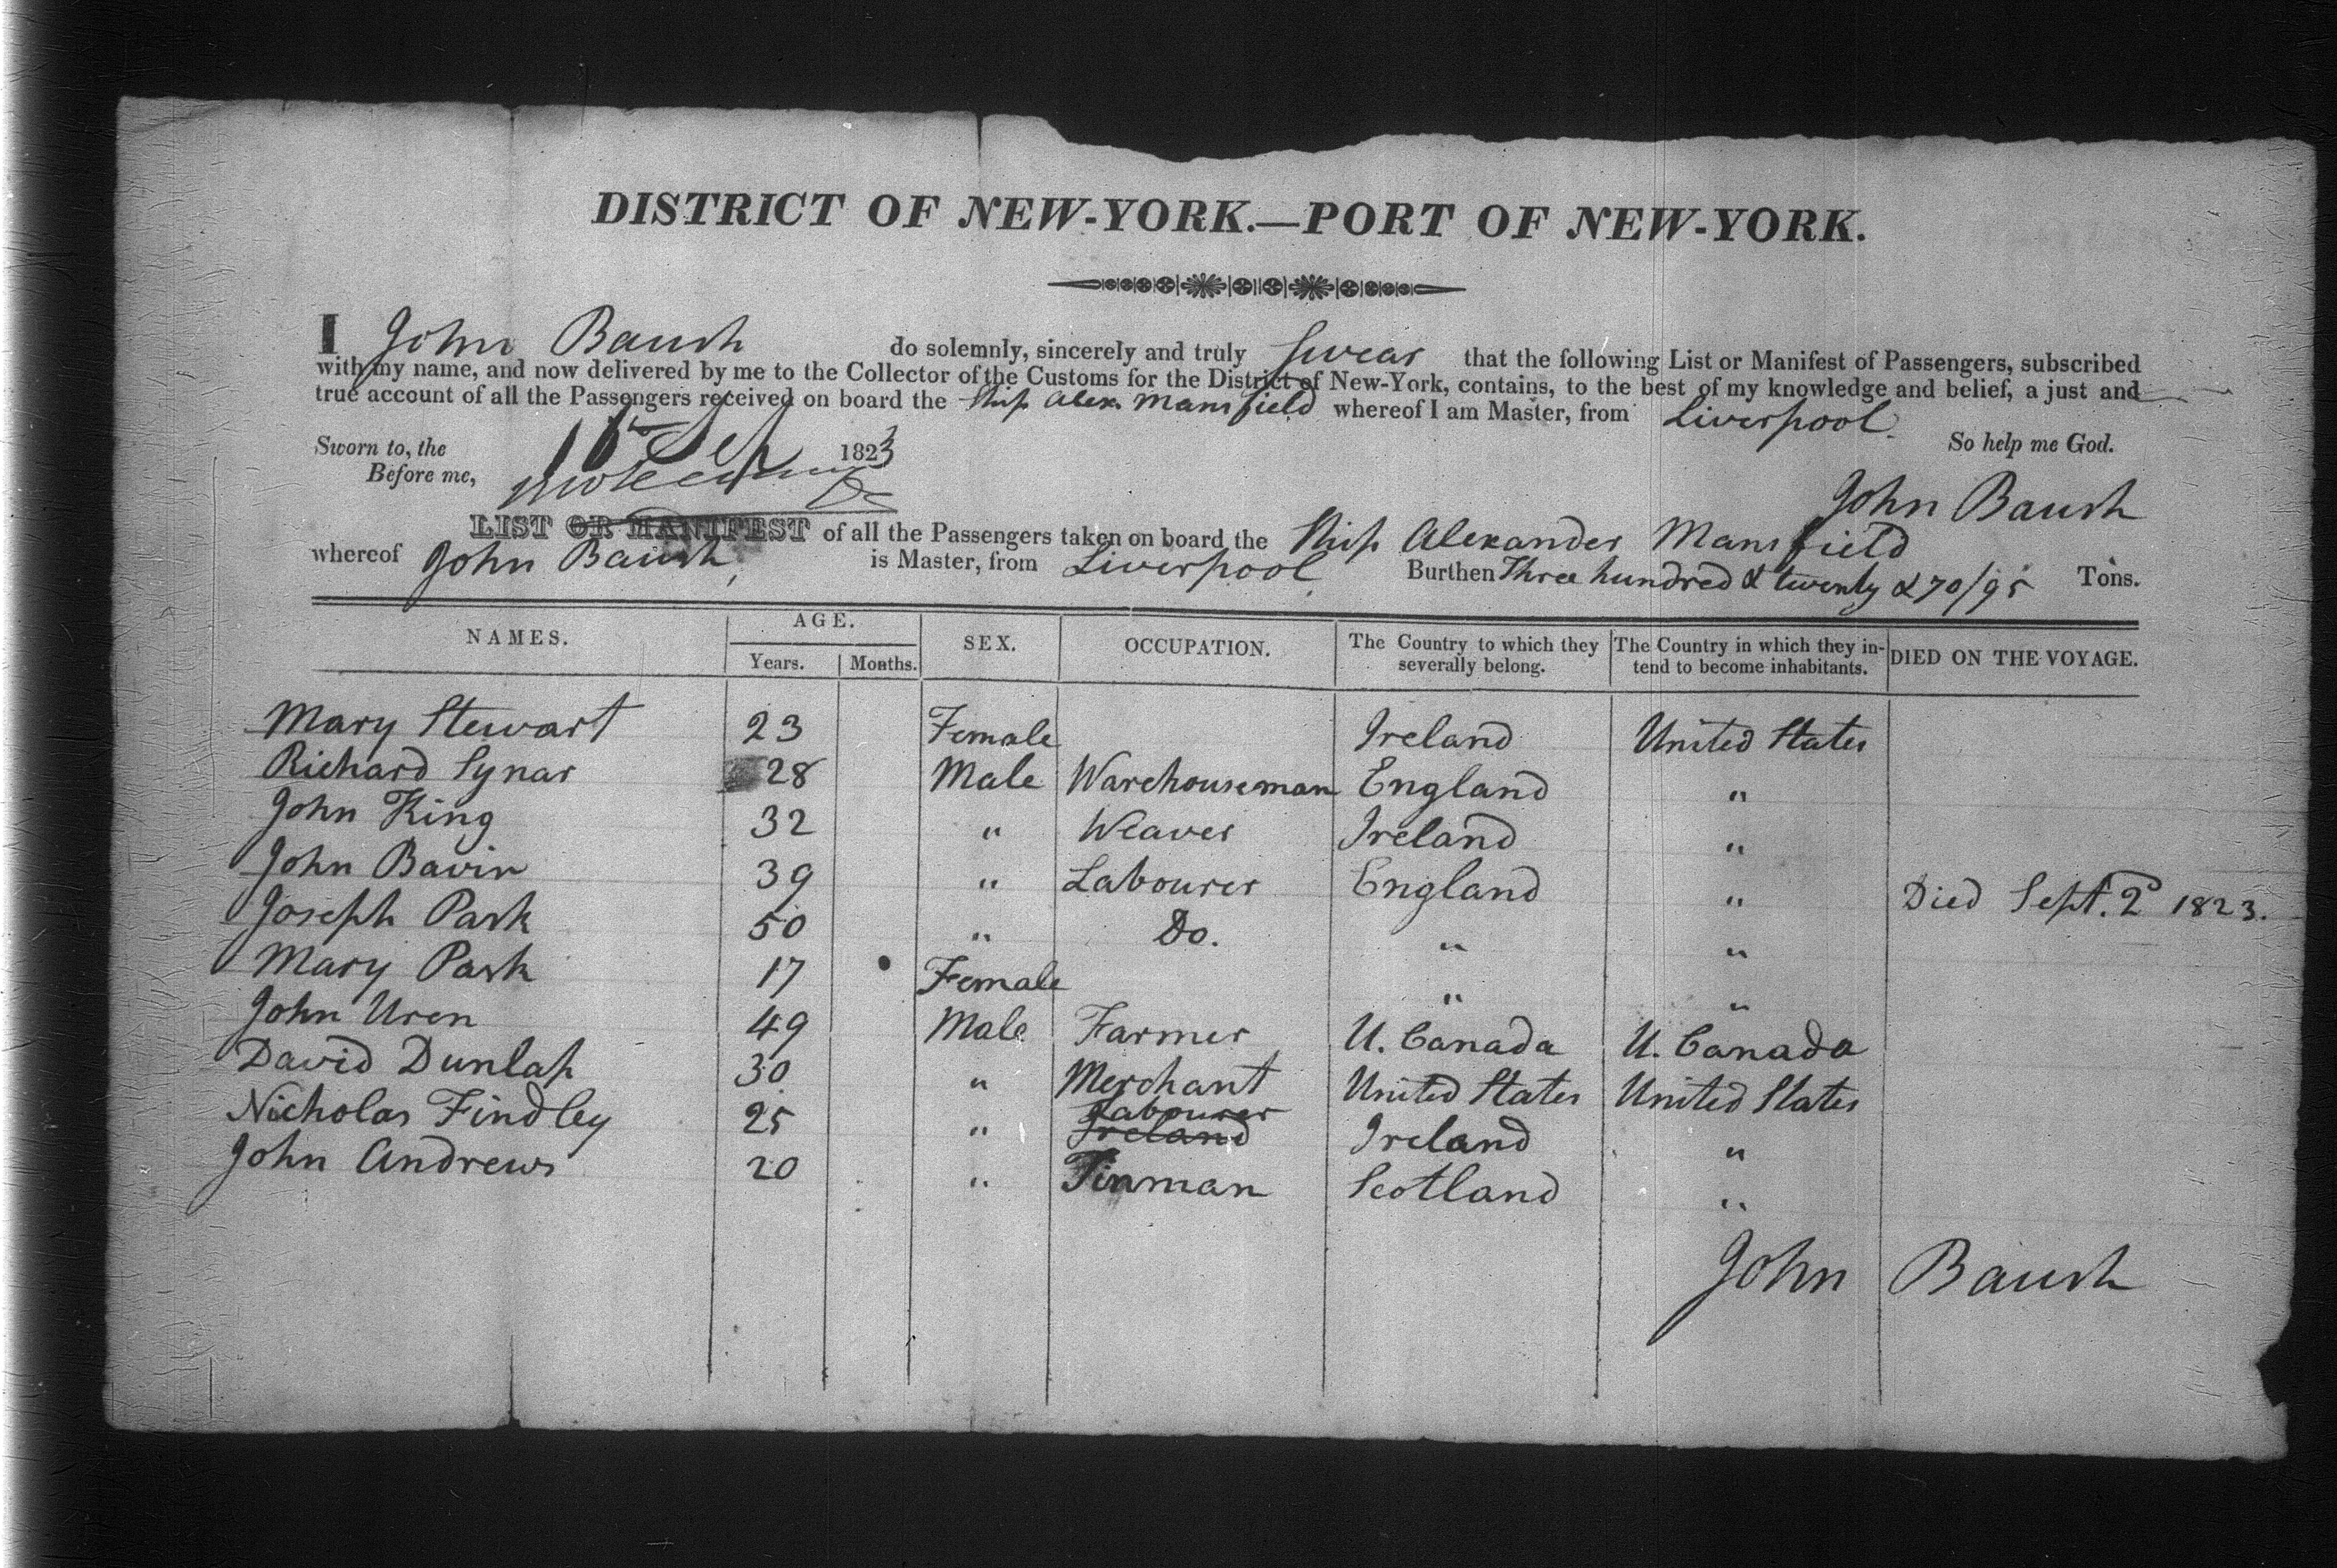 DISTRICT OF NEW-YORK.—PORT OF NEW-YORK.
I John Baush do solemnly, sincerely and truly swear that the following List or Manifest of Passengers, subscribed
with my name, and now delivered by me to the Collector of the Customs for the District of New-York, contains, to the best of my knowledge and belief, a just and
true account of all the Passengers received on board the Ship Alexr. Mansfield whereof I am Master, from Liverpool.
Sworn to, the 16 Sep 1823 So help me God.
Before me,
John Baush
LIST OR MANIFEST of all the Passengers taken on board the Ship Alexander Mansfield
whereof John Baush, is Master, from Liverpool Burthen Three hundred & twenty & 70/95 Tons.
NAMES. AGE. Years. Months. SEX. OCCUPATION. The Country to which they severally belong. The Country in which they in- tend to become inhabitants. DIED ON THE VOYAGE.
Mary Stewart 23 Female Ireland United States
Richard Synar 28 Male Warehouseman England "
John King 32 " Weaver Ireland "
John Bavin 39 " Labourer England " Died Sept. 2d 1823.
Joseph Park 50 " Do. " "
Mary Park 17 Female " "
John Uren 49 Male Farmer U. Canada U. Canada
David Dunlap 30 " Merchant United States United States
Nicholas Findley 25 " Labourer Ireland Ireland "
John Andrews 20 " Tinman Scotland "
John Baush